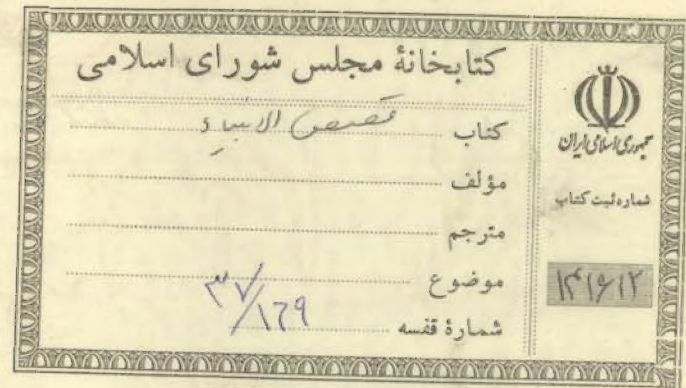 کتابخانهٔ مجلس شورای اسلامی
کتاب قصص الانبیاء
مؤلف
مترجم
موضوع
شمارهٔ قفسه ۳۷/۱۲۹
جمهوری اسلامی ایران
شماره ثبت کتاب